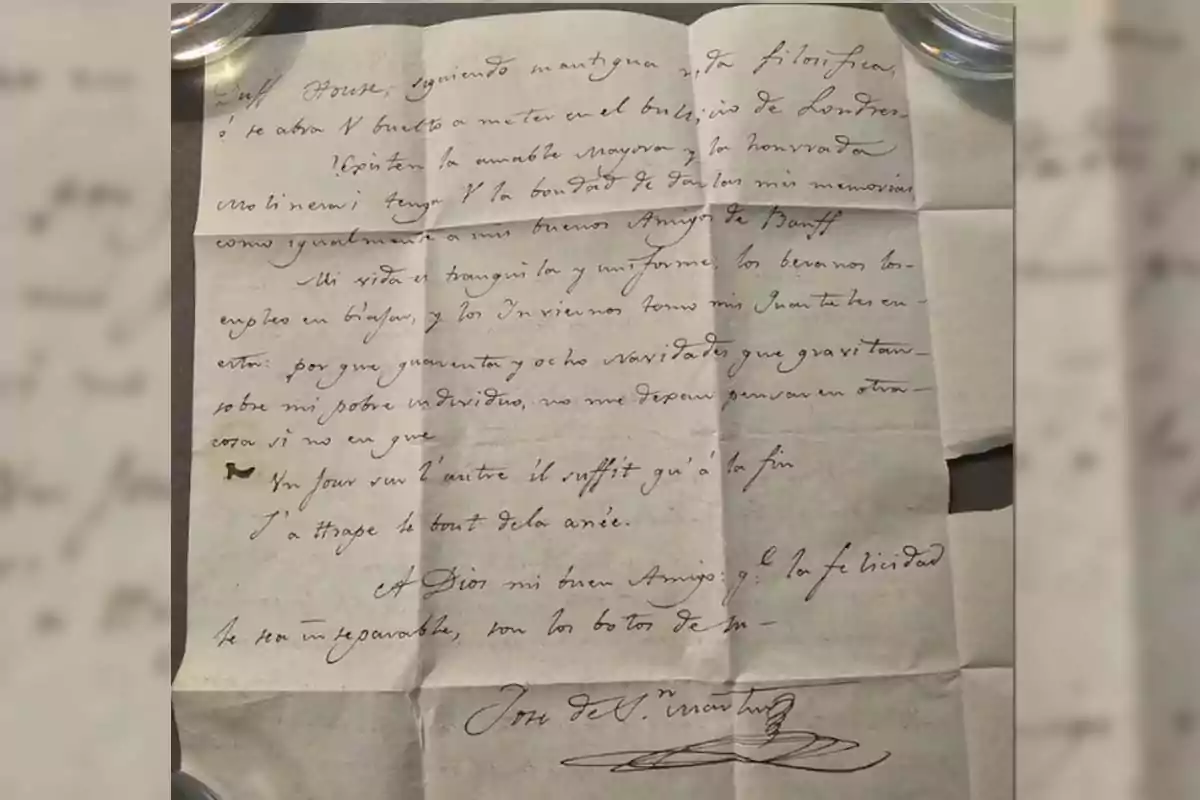 Duff House, siguiendo su antigua vida filosifica,
ó se abra V buelto a meter en el bullicio de Londres
Existen la amable Mayora y la honrrada
Molinera; tenga V la bondad de darlas mis memorias
como igualmente a mis buenos Amigos de Banff
Mi vida es tranquila y uniforme: los beranos los
enpleo en biajar, y los Inviernos tomo mis Quarteles en
esta: por que quarenta y ocho Navidades que gravitan
sobre mi pobre individuo, no me dexan pensar en otra
cosa si no en que
Un jour sur l'autre il suffit qu'á la fin
J'attrape le bout dela anée.
A Dios mi buen Amigo: q.e la felicidad
le sea inseparable, son los botos de su
Jose de S.n Martin